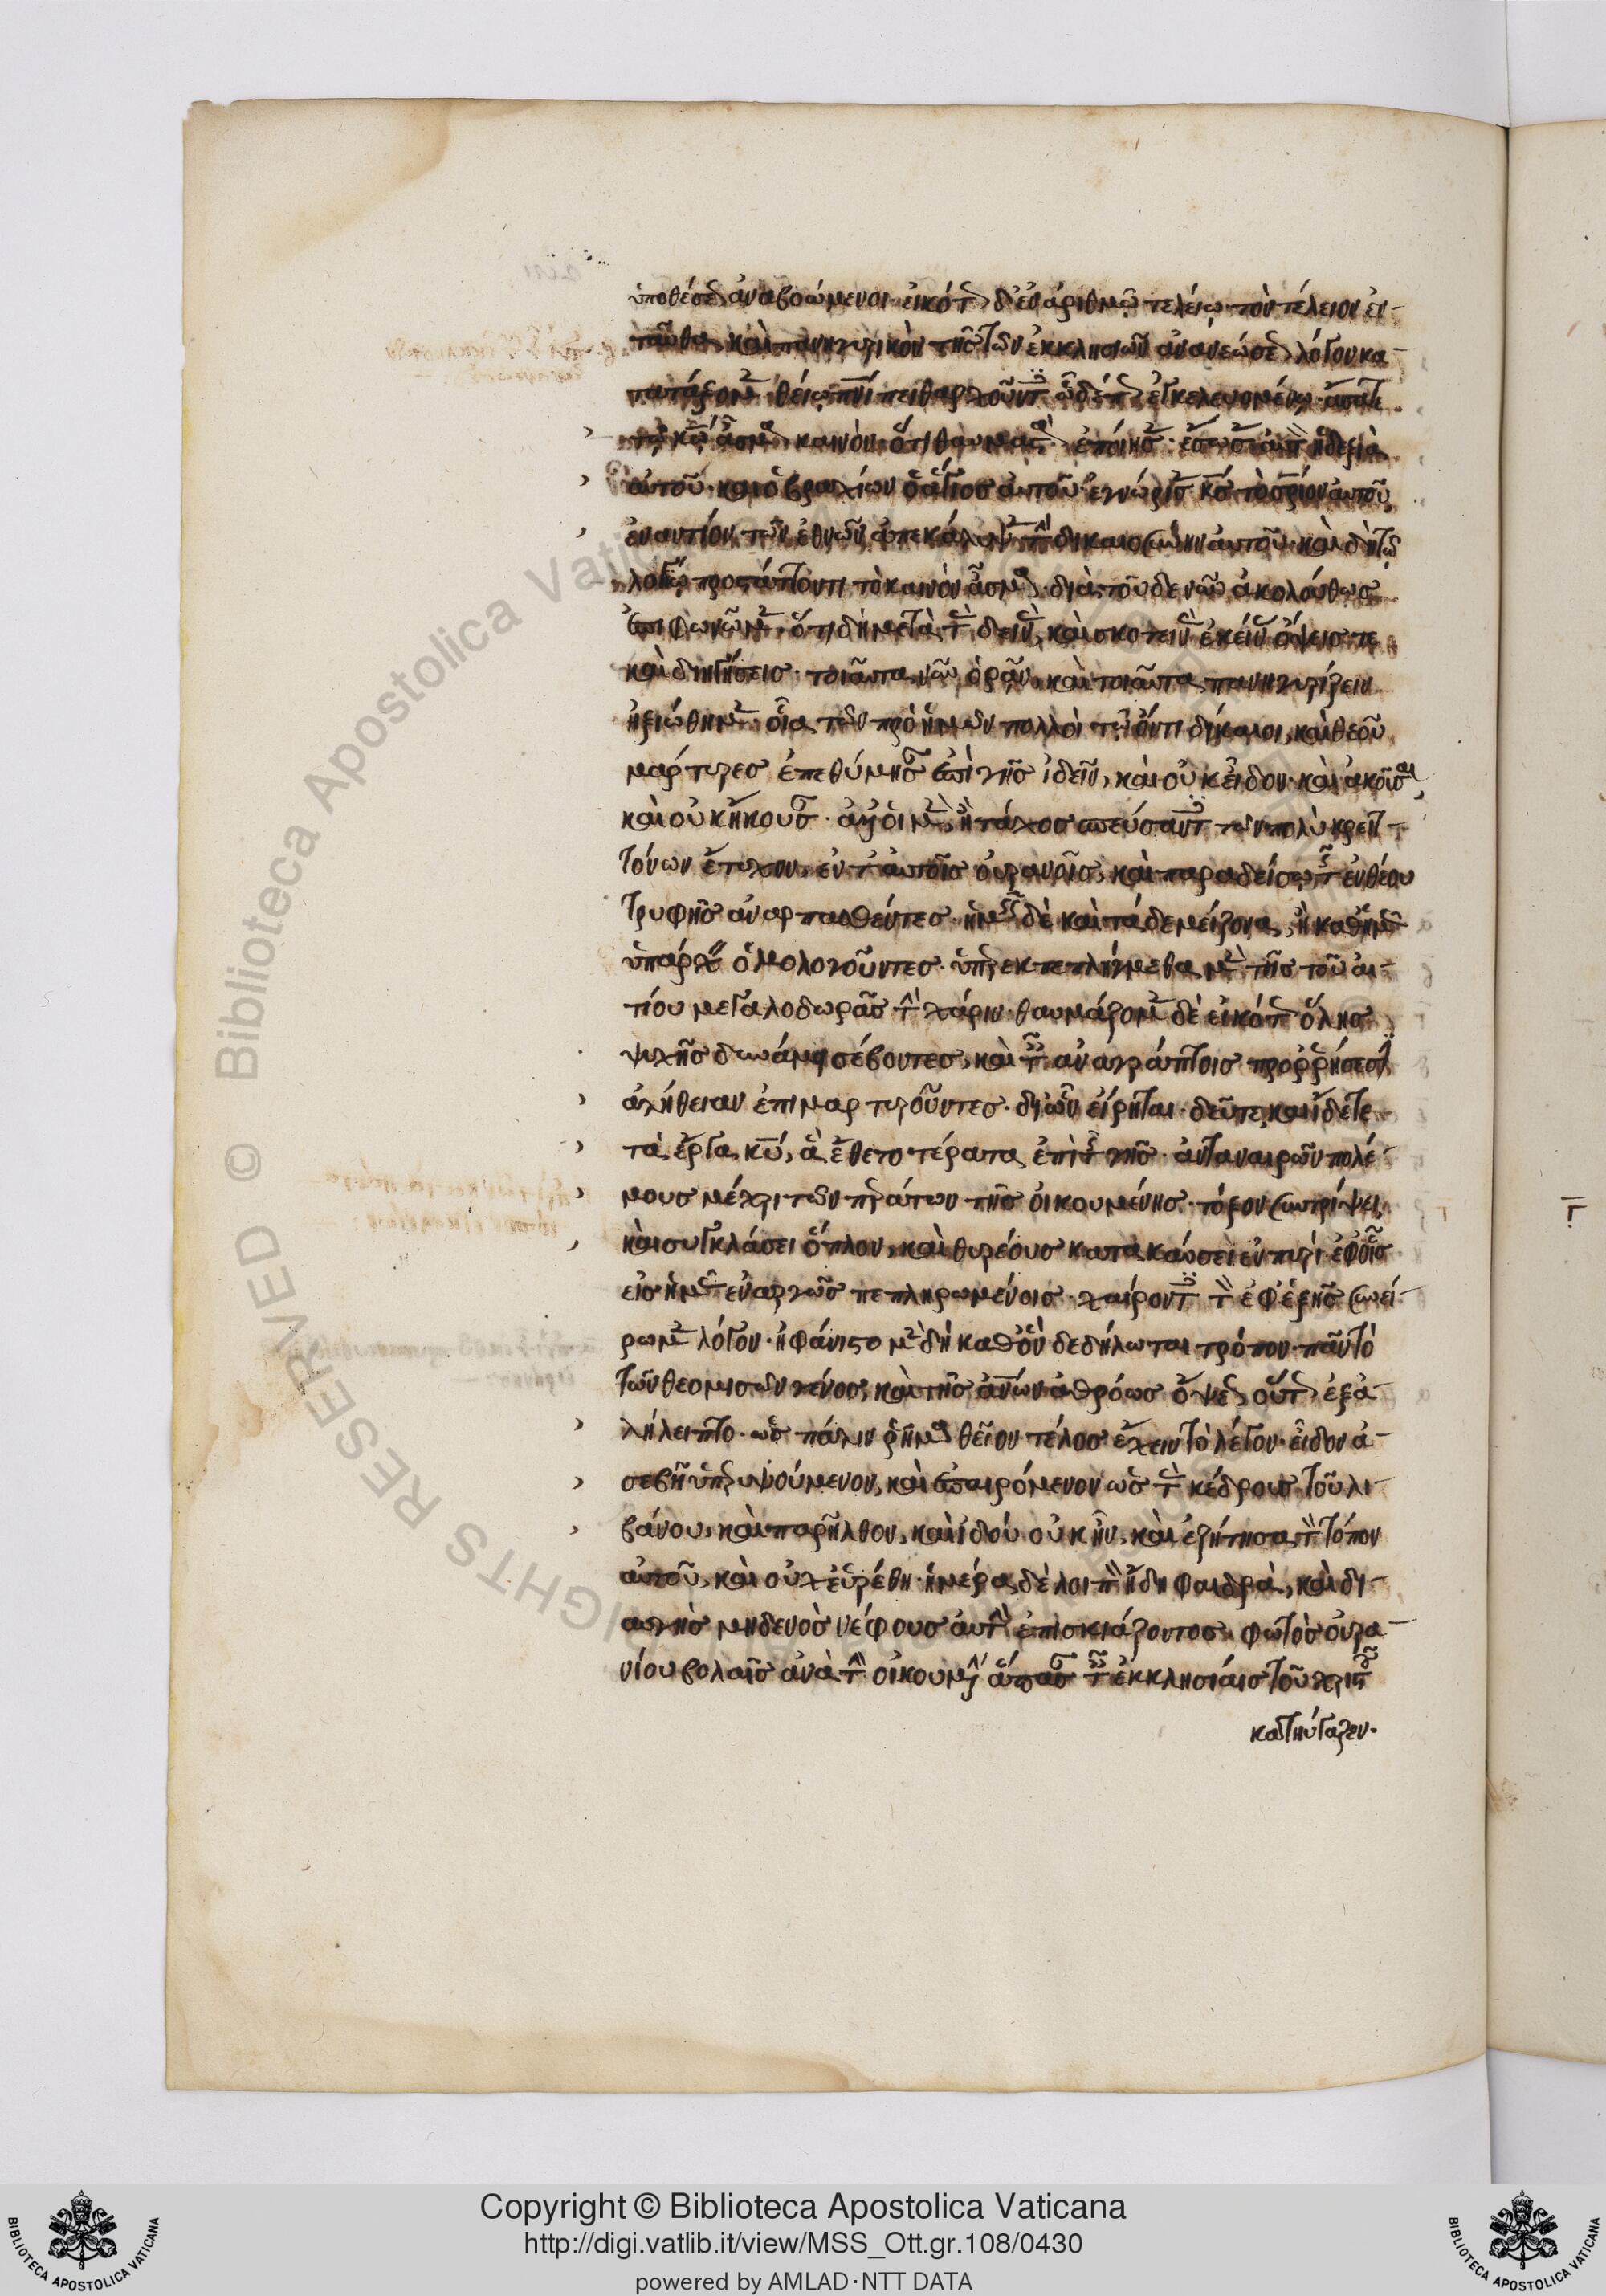 ὑποθέσει ἀναβοώμενοι· εἰκότως δ' ἐν ἀριθμῷ τελείῳ· τὸν τέλειον ἐν-
ταῦθα καὶ πανηγυρικὸν τῆς τῶν ἐκκλησιῶν ἀνανεώσεως λόγον κα-
τατάξομεν θείῳ πνι πειθαρχοῦντες ὧδέ πως ἐγκελευομένῳ· ἄσατε
τῷ κῷ ἆσμα καινὸν ὅτι θαυμαστὰ ἐποίησεν· ἔσωσεν αὐτὸν ἡ δεξιὰ
αὐτοῦ· καὶ ὁ βραχίων ὁ ἅγιος αὐτοῦ· ἐγνώρισε κς τὸ σριον αὐτοῦ,
ἐναντίον τῶν ἐθνῶν ἀπεκάλυψε τὴν δικαιοσύνην αὐτοῦ· καὶ δὴ τῷ
λογίῳ προστάττοντι τὸ καινὸν ἆσμα· διὰ τοῦδε νῦν ἀκολούθως
ἐπιφωνῶμεν, ὅτι δὴ μετὰ τὰς δεινὰς καὶ σκοτεινὰς ἐκείνας ὄψεις τε
καὶ διηγήσεις· τοιαῦτα νῦν ὁρᾶν, καὶ τοιαῦτα πανηγυρίζειν
ἠξιώθημεν· οἷα τῶν πρὸ ἡμῶν πολλοὶ τῷ ὄντι δίκαιοι, καὶ θεοῦ
μάρτυρες ἐπεθύμησαν ἐπὶ γῆς ἰδεῖν, καὶ οὐκ εἶδον· καὶ ἀκοῦσαι
καὶ οὐκ ἤκουσαν· ἀλλ' οἱ μὲν ᾗ τάχος σπεύσαντες τῶν πολὺ κρειτ-
τόνων ἔτυχον, ἐν τ αὐτοῖς οὐρανοῖς, καὶ παραδείσῳ τῆς ἐνθέου
τρυφῆς ἀναρπασθέντες· ἡμεῖς δὲ καὶ τάδε μείζονα ἢ καθ' ἡμᾶς
ὑπάρχειν ὁμολογοῦντες· ὑπερεκπεπλήγμεθα μὲν τῆς τοῦ αἰ-
τίου μεγαλοδωρεᾶς τὴν χάριν· θαυμάζομεν δὲ εἰκότως ὅλης
ψυχῆς δυνάμει σέβοντες, καὶ ταῖς ἀναγράπτοις προρρήσεσιν
ἀλήθειαν ἐπιμαρτυροῦντες· δι' ὧν εἴρηται· δεῦτε καὶ ἴδετε
τὰ ἔργα κυ, ἃ ἔθετο τέρατα ἐπὶ τῆς γῆς· ἀνταναιρῶν πολέ-
μους μέχρι τῶν περάτων τῆς οἰκουμένης· τόξον συντρίψει,
καὶ συγκλάσει ὅπλον, καὶ θυρεοὺς κατακαύσει ἐν πυρί· ἐφ' οἷς
εἰς ἡμᾶς ἐναργῶς πεπληρωμένοις· χαίροντες τὸν ἐφεξῆς συνεί-
ρωμεν λόγον· ἠφάνιστο μὲν δὴ καθ' ὃν δεδήλωται τρόπον· πᾶν τὸ
τῶν θεομισῶν γένος, καὶ τῆς ἀνων ἀθρόως ὄψεως οὕτως ἐξα-
λήλειπτο· ὡς πάλιν ῥῆμα θεῖον τέλος ἔχειν τὸ λέγον· εἶδον ἀ-
σεβῆ ὑπερυψούμενον, καὶ ἐπαιρόμενον ὡς τὰς κέδρους τοῦ λι-
βάνου, καὶ παρῆλθον, καὶ ἰδοὺ οὐκ ἦν, καὶ ἐζήτησα τὸν τόπον
αὐτοῦ, καὶ οὐχ εὑρέθη· ἡμέρα δὲ λοιπὸν ἤδη φαιδρὰ, καὶ δι-
αυγὴς μηδενὸς νέφους αὐτὴν ἐπισκιάζοντος, φωτὸς οὐρα-
νίου βολαῖς ἀνὰ τὴν οἰκουμένην ἅπασαν ταῖς ἐκκλησίαις τοῦ χριστοῦ
κατηύγαζεν·
Copyright © Biblioteca Apostolica Vaticana
http://digi.vatlib.it/view/MSS_Ott.gr.108/0430
powered by AMLAD·NTT DATA